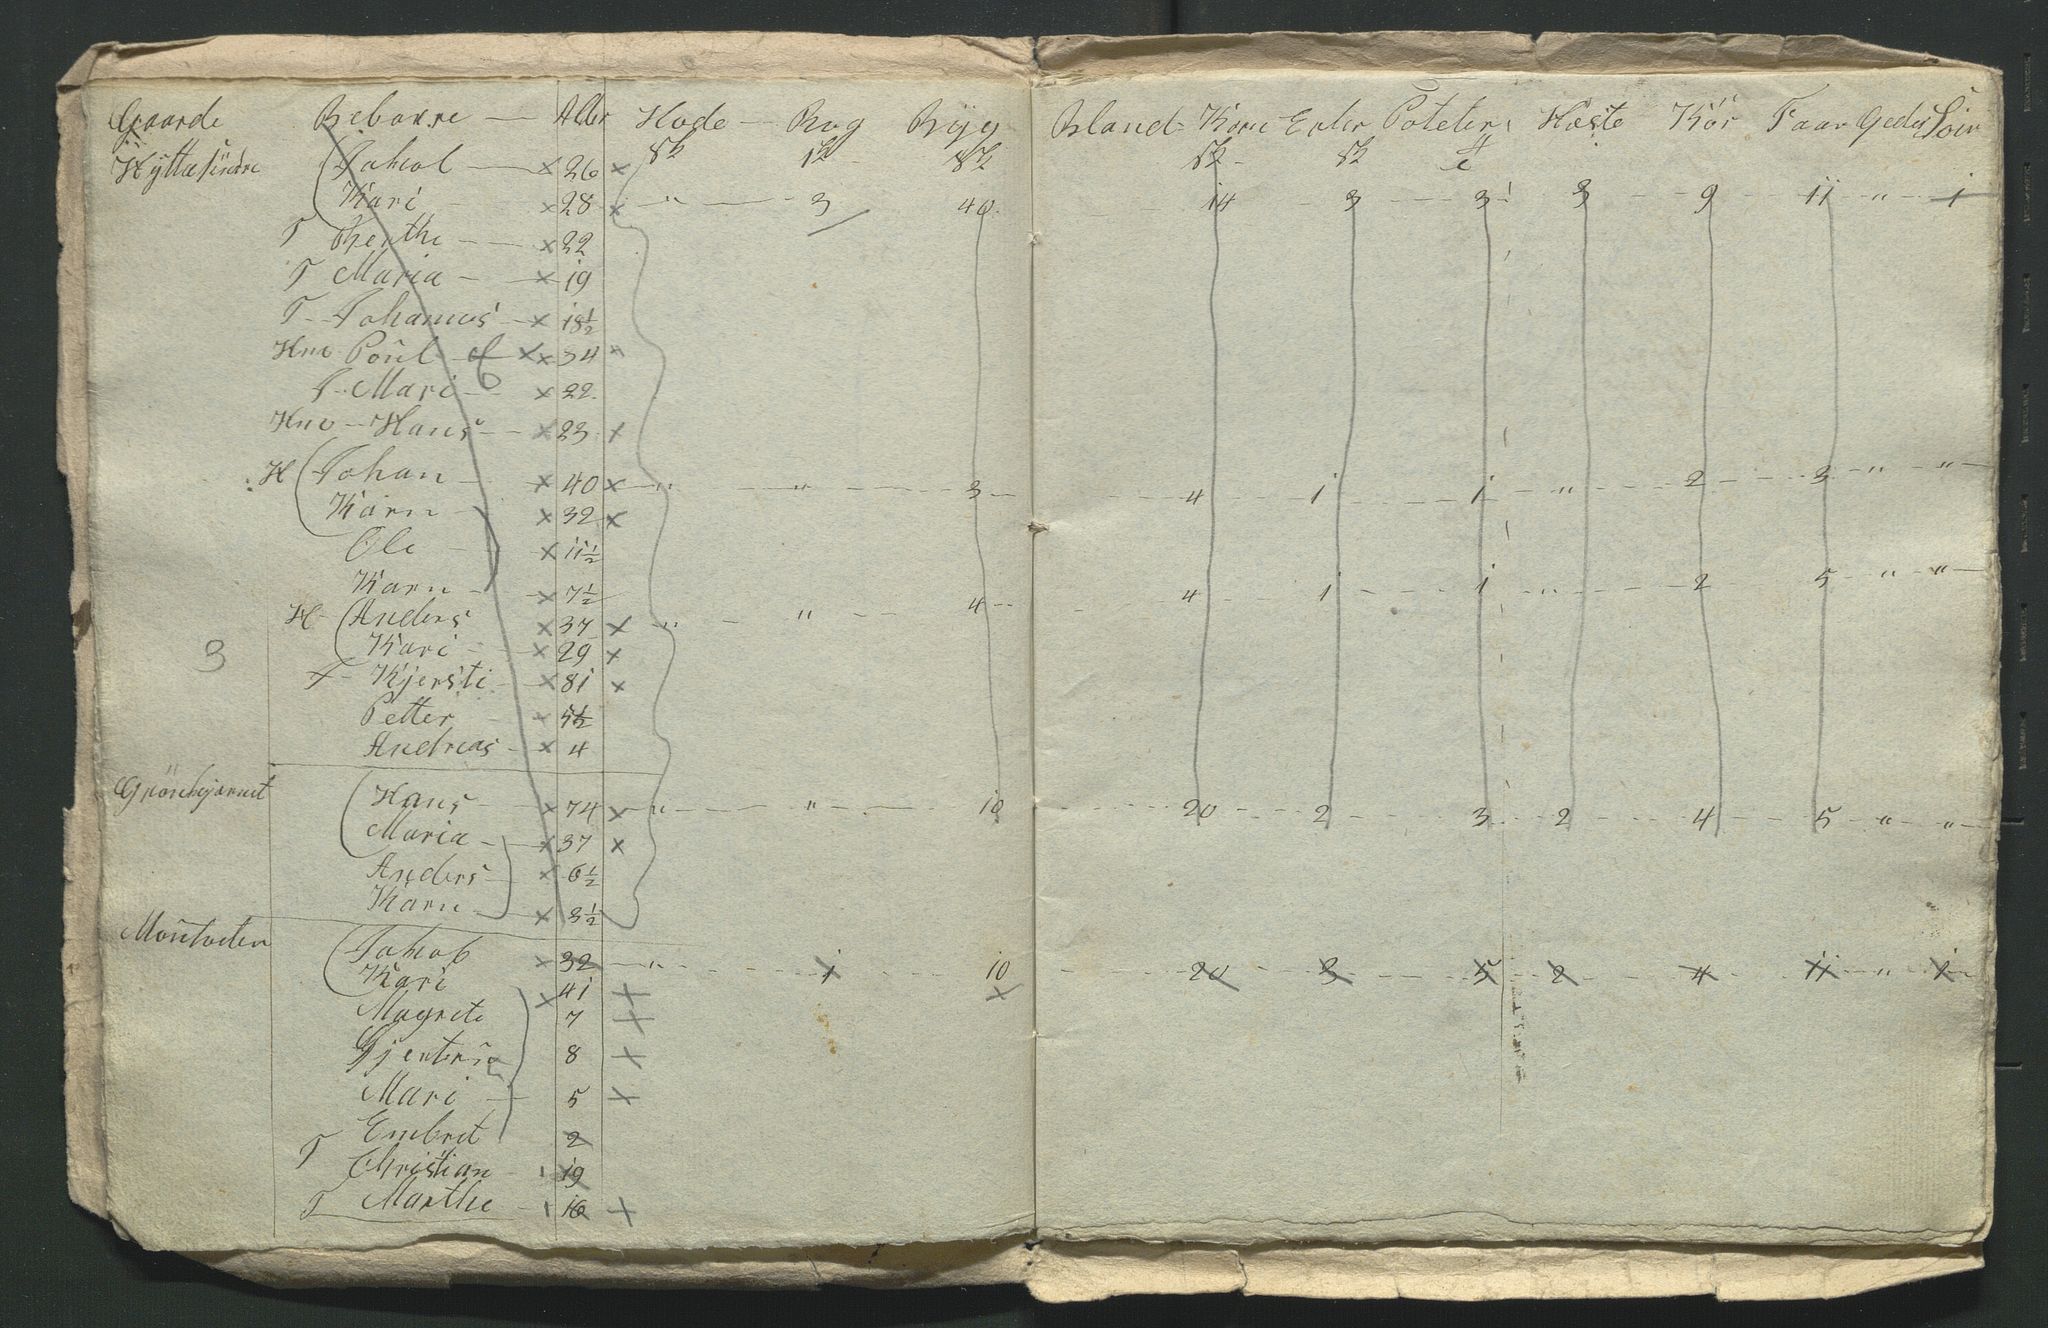 Gaarde Beboere Alder Hvede Rug Byg Bland Korn Erter Poteter Heste Kör Faar Geder Svin
Hytta
Jakob 26
Kari 28 " 3 40 14 3 3 3 9 11 " 1
T Berthe 22
T Maria 19
T Johannes 18½
Poul 34
T Mari 22
Hans 23
H Johan 40 " " 3 4 1 1 " 2 3 " "
Karn 32
Ole 11½
Karn 7½
H Anders 37 " " 4 4 1 1 " 2 5 " "
Kari 29
Kjersti 81
Petter
3
Andreas 4
Hans 74 " " 10 20 2 3 2 4 5 " "
Maria 37
Anders 6½
Karn 3½
Jakob 32 " 1 10 20 3 5 2 4 11 " 1
Kari 41
Magrete 7
8
Mari 5
Embret 2
T Christian 19
T Marthe 16